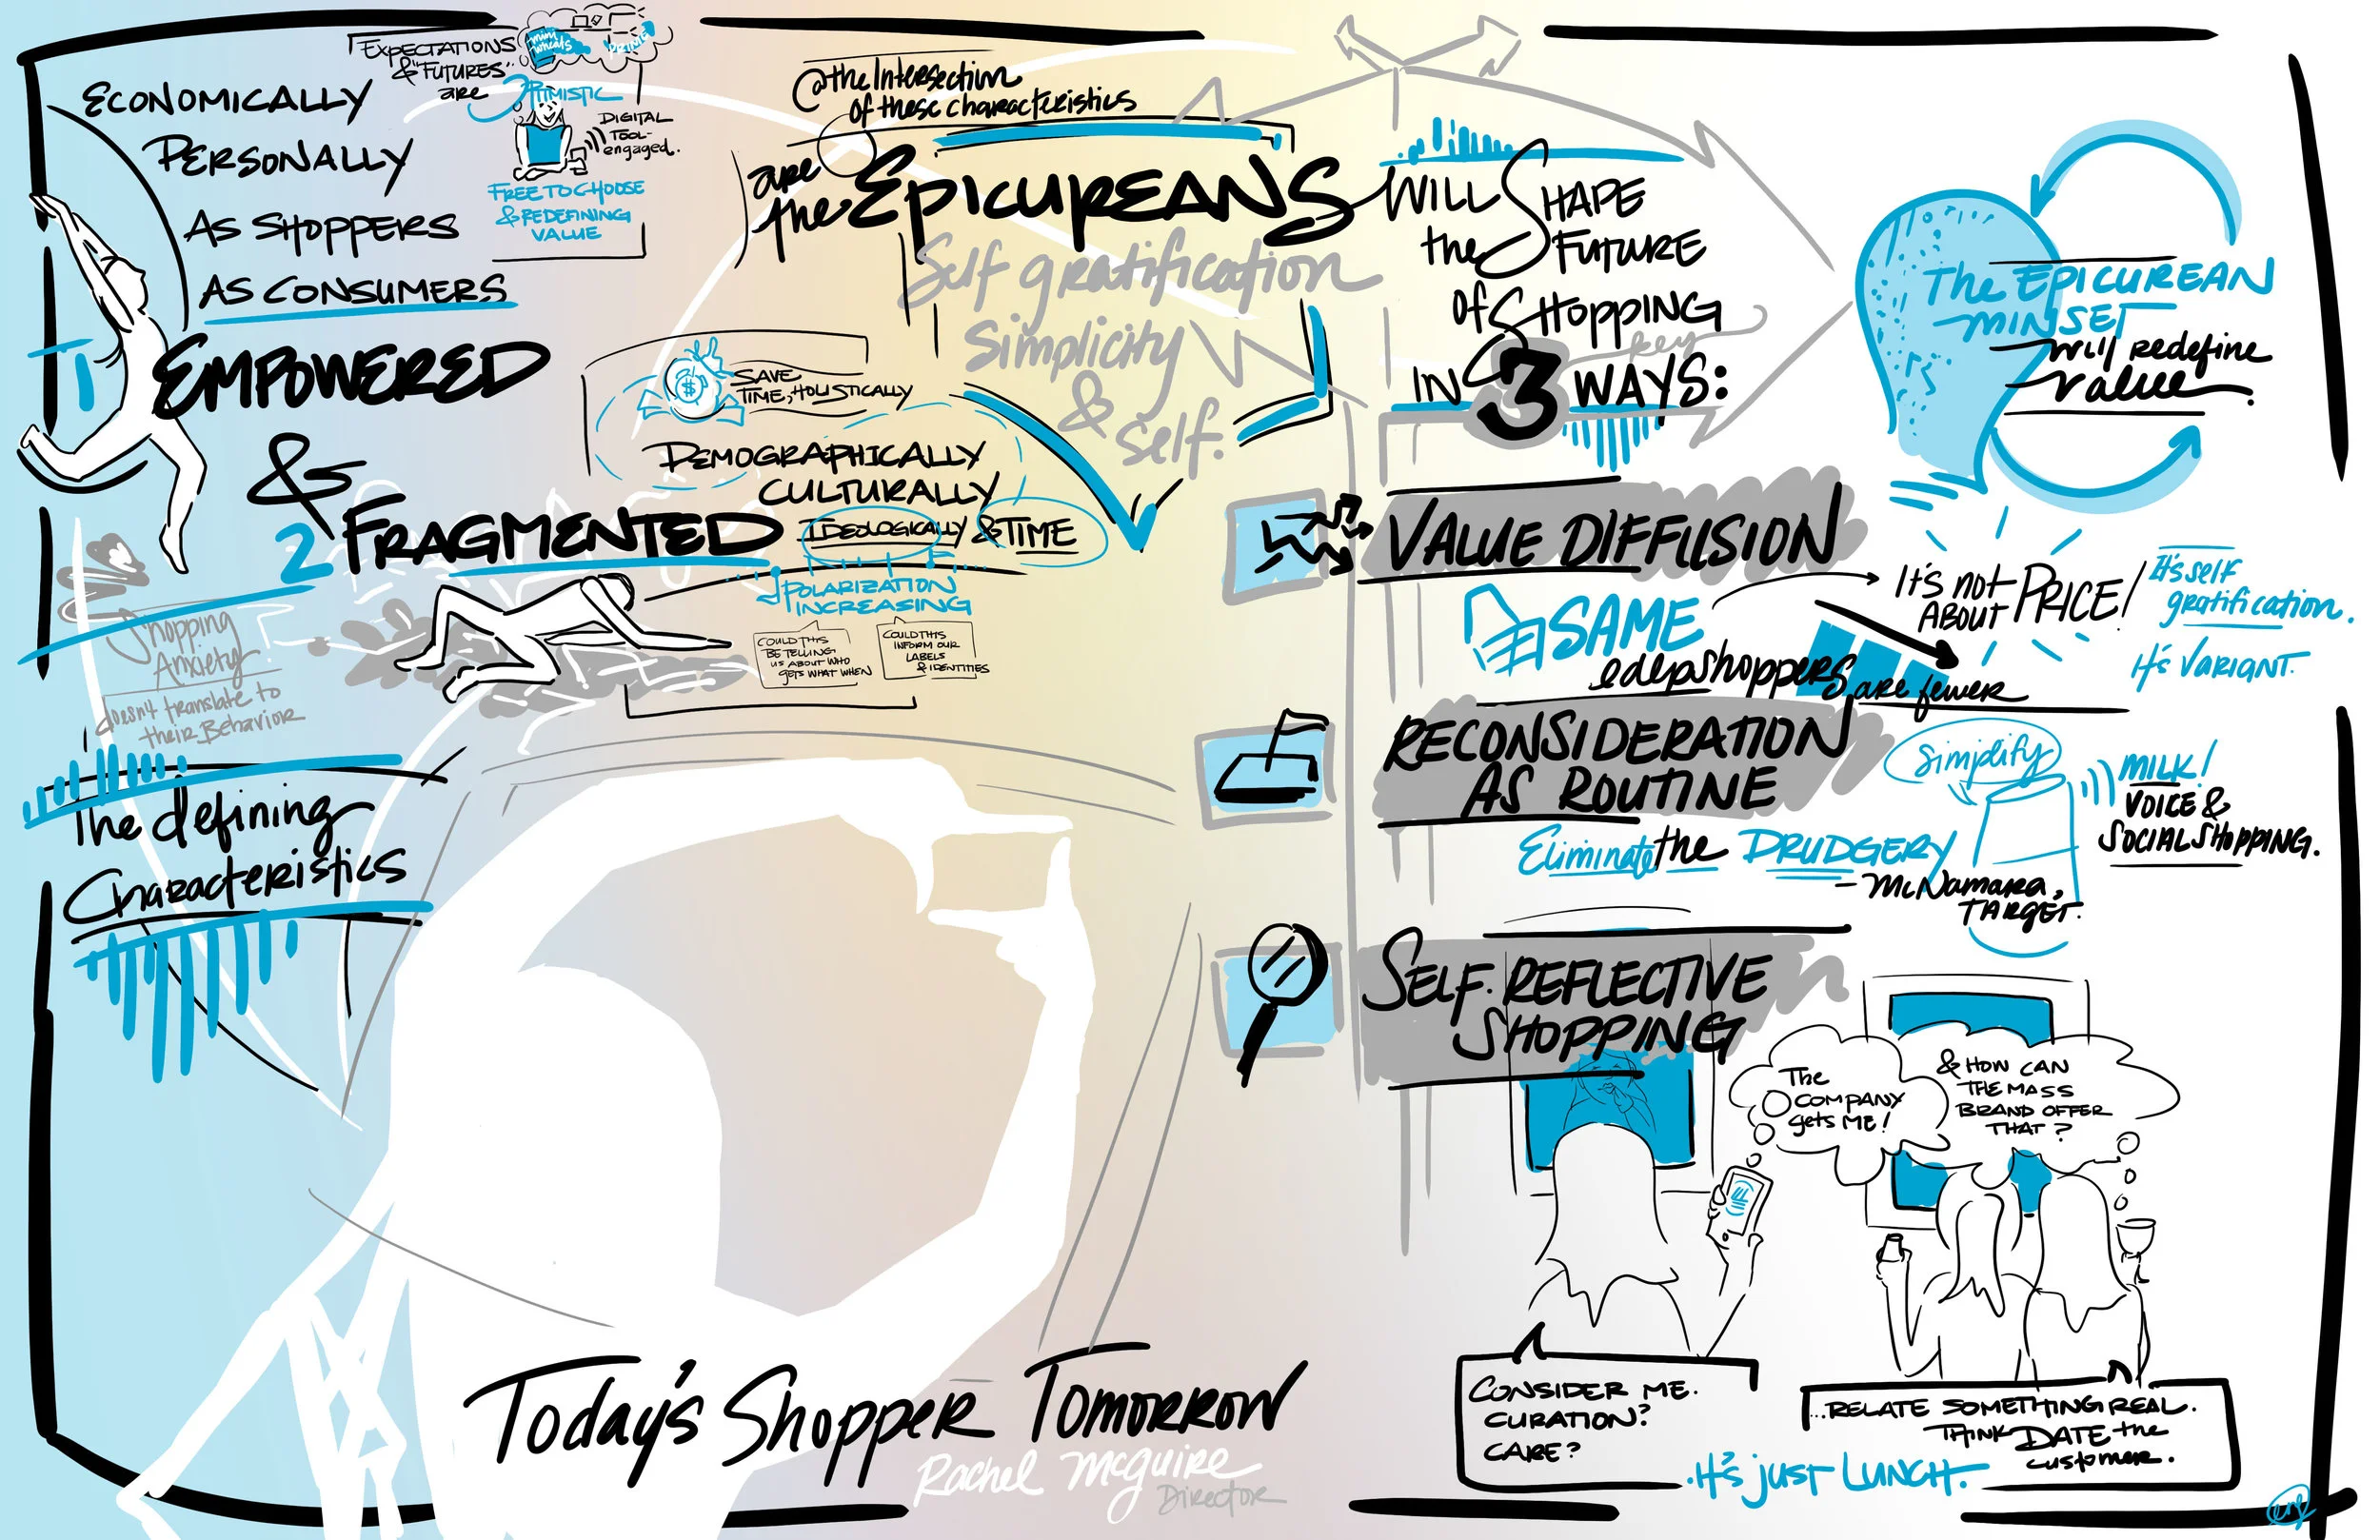 ECONOMICALLY
PERSONALLY
AS SHOPPERS
AS CONSUMERS
1
EMPOWERED
&
2 FRAGMENTED
EXPECTATIONS
& "FUTURES"
are
OPTIMISTIC
mini
wheats
PRIME
DIGITAL
TOOL-
engaged.
FREE TO CHOOSE
& REDEFINING
VALUE
SAVE
TIME, HOLISTICALLY
$
DEMOGRAPHICALLY
CULTURALLY
IDEOLOGICALLY & TIME
POLARIZATION
INCREASING
COULD THIS
BE TELLING
US ABOUT WHO
GETS WHAT WHEN
COULD THIS
INFORM OUR
LABELS
& IDENTITIES
Shopping
Anxiety
doesn't translate to
their Behavior
The defining
Characteristics
@ the Intersection
of these characteristics
are
the EPICUREANS
Self gratification
Simplicity
&
Self.
WILL SHAPE
the FUTURE
of SHOPPING
key
IN 3 WAYS:
The EPICUREAN
MINSET
will redefine
value.
VALUE DIFFUSION
SAME
shoppers
are fewer
It's not
ABOUT PRICE!
It's self
gratification.
it's VARIANT.
RECONSIDERATION
AS ROUTINE
Eliminate the DRUDGERY
- McNamara,
TARGET.
Simplify
MILK!
VOICE &
SOCIAL SHOPPING.
SELF-REFLECTIVE
SHOPPING
The
COMPANY
gets ME!
& HOW CAN
THE MASS
BRAND OFFER
THAT?
CONSIDER ME.
CURATION?
CARE?
...RELATE SOMETHING REAL.
THINK DATE the
customer.
.It's just LUNCH.
Today's Shopper Tomorrow
Rachel McGuire
Director